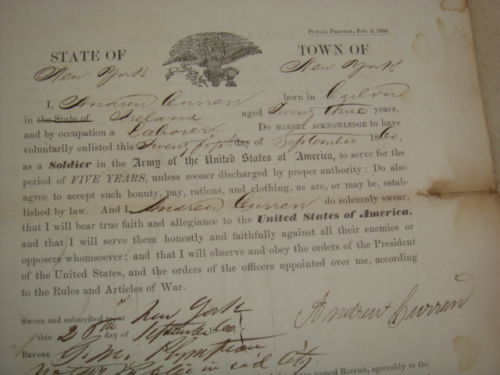 PUBLIC PRINTER, Feb. 2, 1860.
STATE OF TOWN OF
New York New York
I, Andrew Curren born in Carlow
in the State of Ireland aged Twenty three years,
and by occupation a Laborer, Do HEREBY ACKNOWLEDGE to have
voluntarily enlisted this Twenty day of September 1860,
as a Soldier in the Army of the United States of America, to serve for the
period of FIVE YEARS, unless sooner discharged by proper authority: Do also
agree to accept such bounty, pay, rations, and clothing, as are, or may be, estab-
lished by law. And I Andrew Curren do solemnly swear,
that I will bear true faith and allegiance to the United States of America,
and that I will serve them honestly and faithfully against all their enemies or
opposers whomsoever; and that I will observe and obey the orders of the President
of United States, and the orders of the officers appointed over me, according
to the Rules and Articles of War.
Sworn and subscribed to at New York
this 28th day of September 1860. Andrew Curran
BEFORE
Notary Public in said City.
named Recruit, agreeably to the